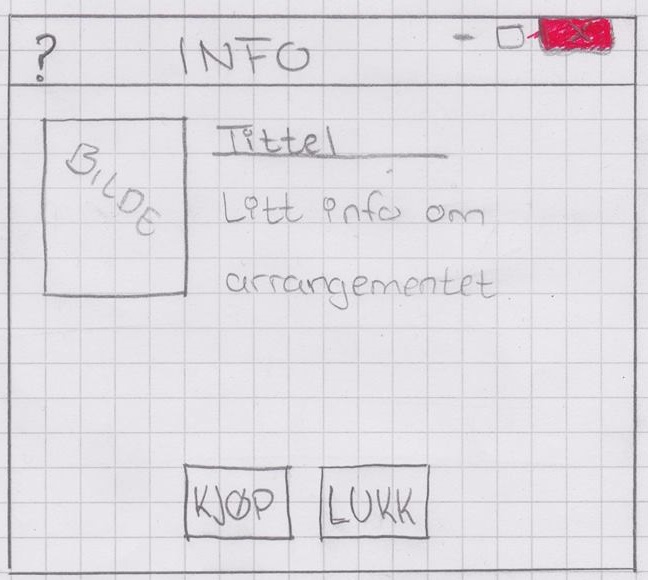 ? INFO - X
BILDE
Tittel
Litt info om
arrangementet
KJØP LUKK